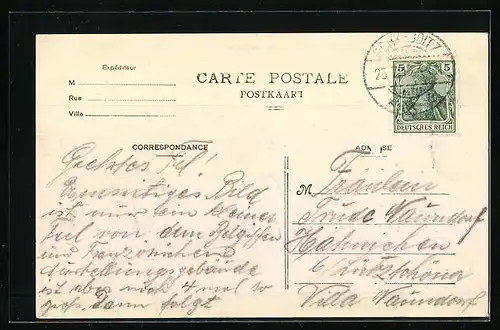 Expéditeur
M
Rue
Ville
CARTE POSTALE
POSTKAART
5 5
DEUTSCHES REICH
CORRESPONDANCE
Geehrtes Frl!
Umseitiges Bild
ist nur ein kleiner
Teil von dem Belgischen
und Französischen
Ausstellungsgebäude
ist aber noch 4 mal so
groß. Dann folgt
M Fräulein
Trude Naundorf
Hähnichen
b/ Lützschena
Villa Naundorf